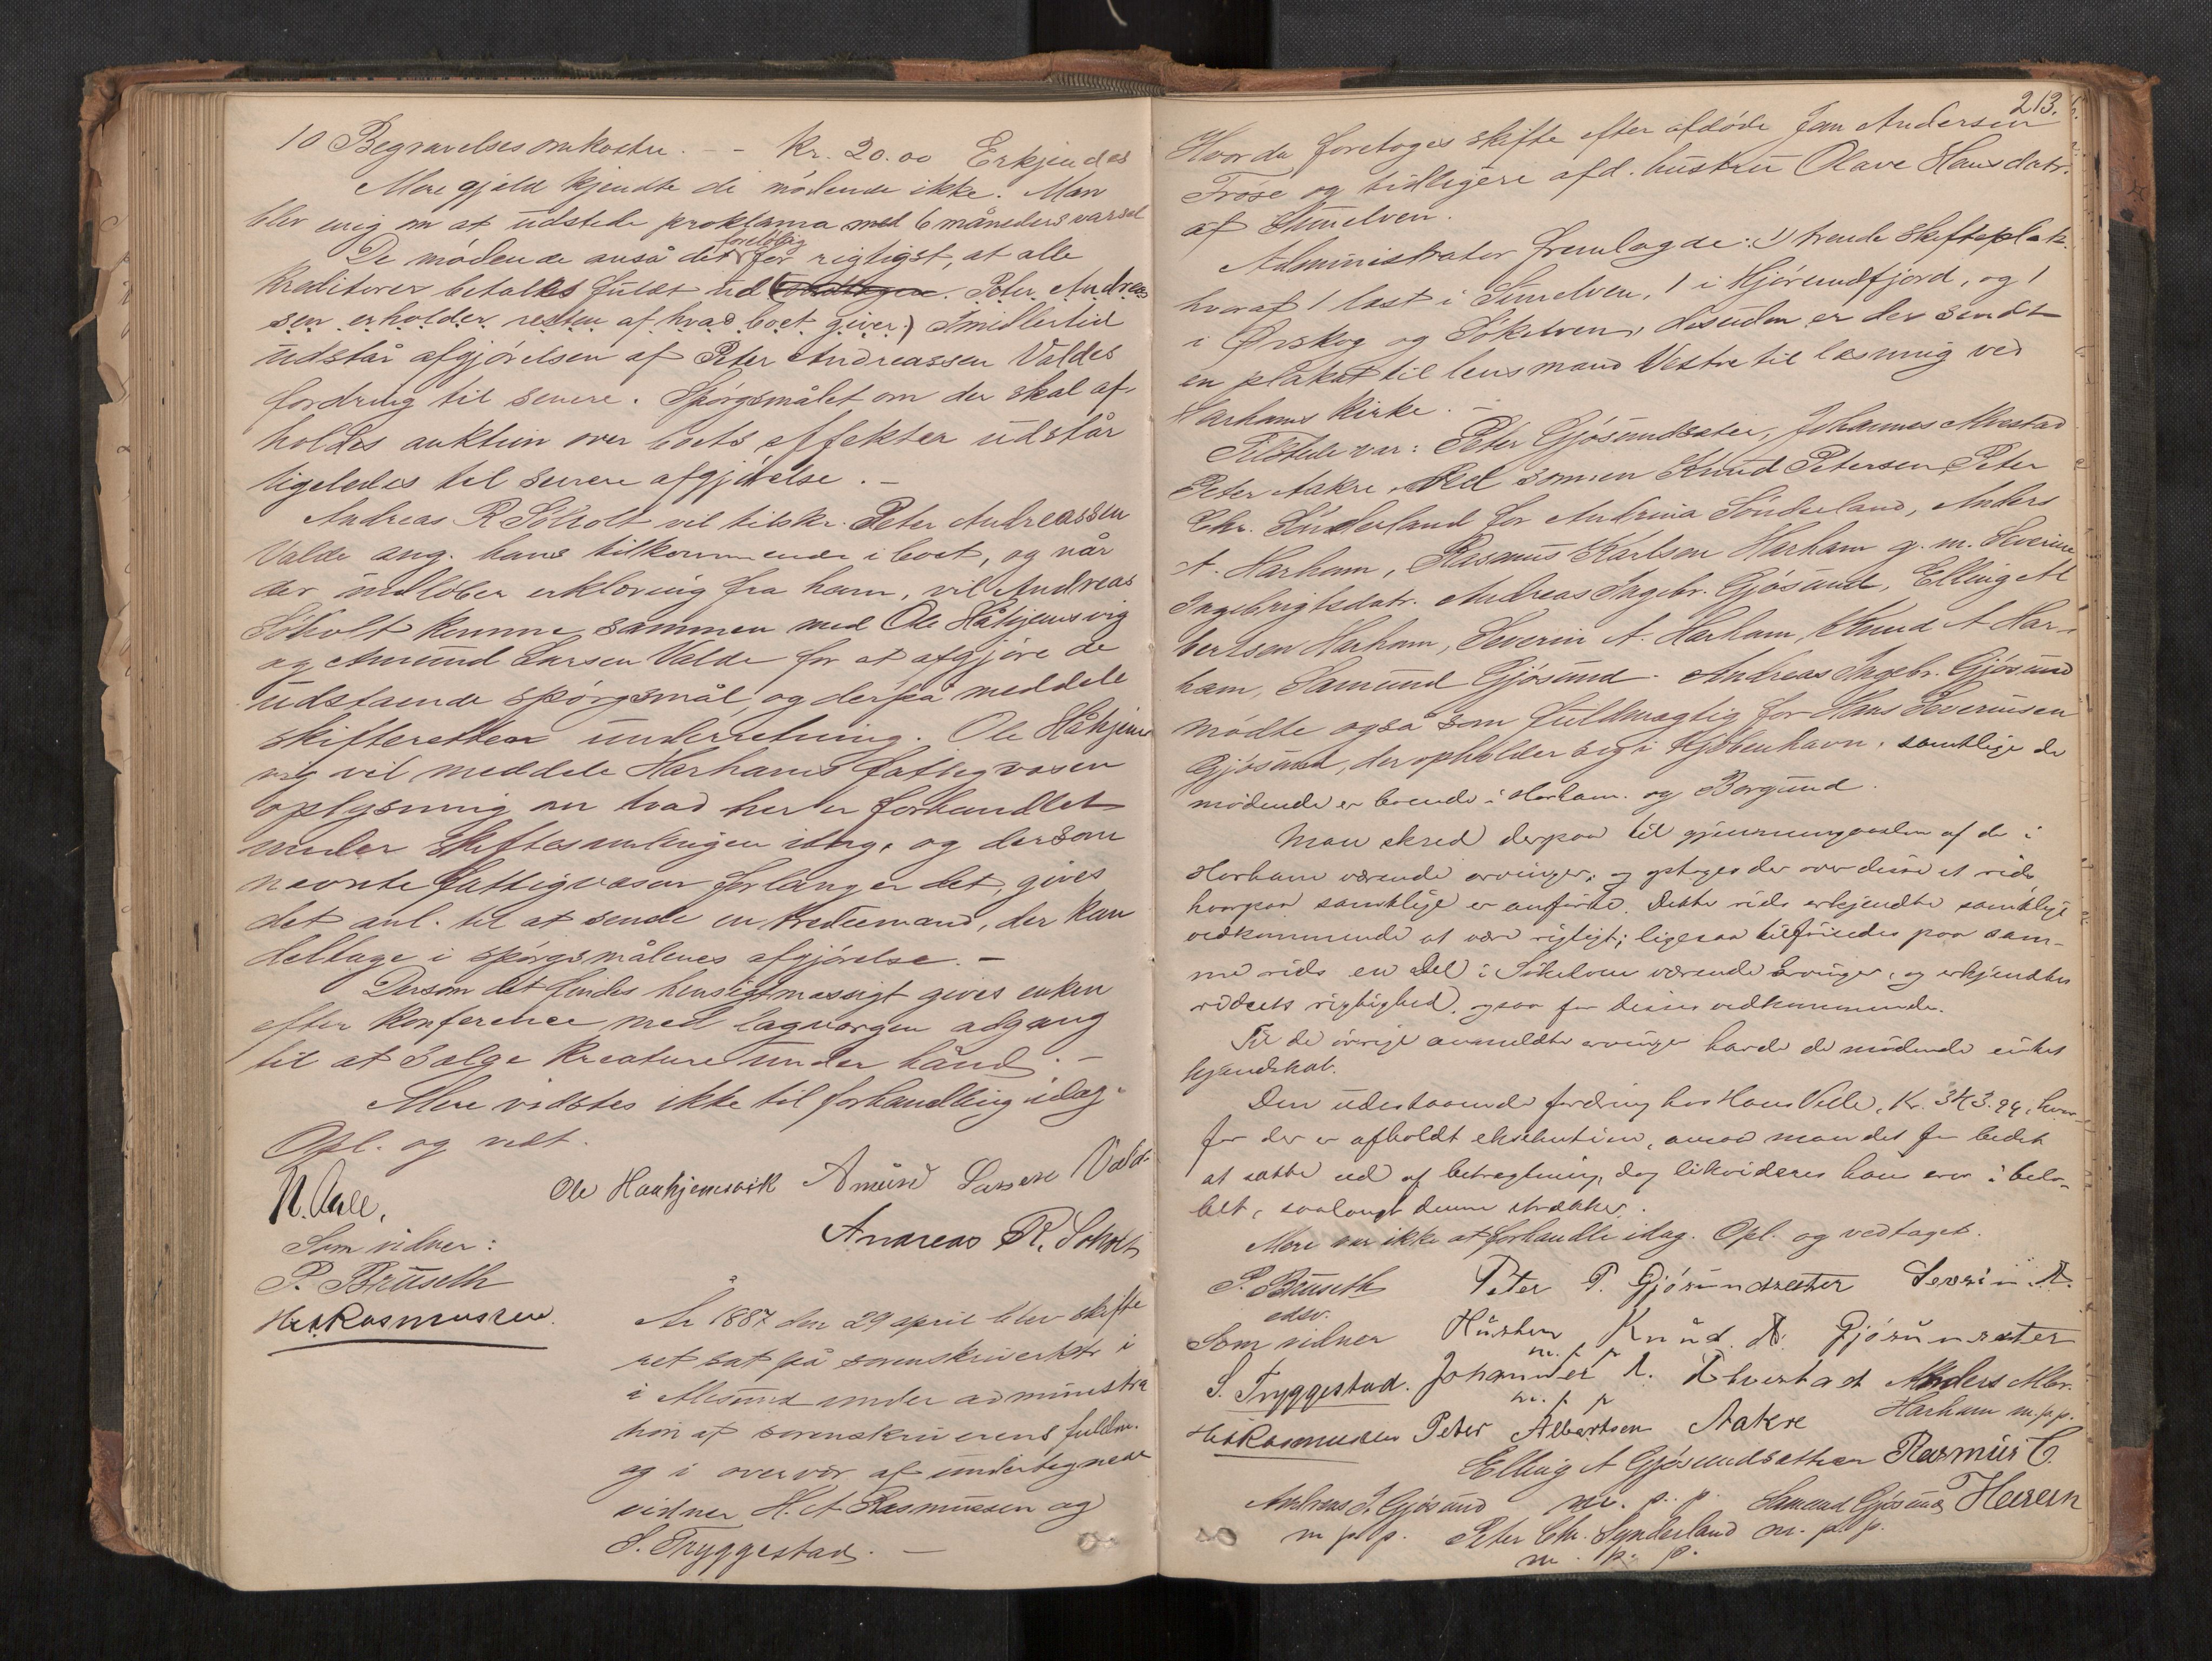 10 Begravelsesomkostn. - - Kr. 20.00 Erkjendes
Mere gjeld kjendte de mødende ikke. Man
blev enig om at udstede proklama med 6 måneders varsel
foreløbig
De mødende anså det for rigtigst, at alle
kreditorer betales fuldt ud Peter Andreas
sen erholder resten af hvad boet giver.) Imidlertid
udstår afgjørelsen af Peter Andreassen Valdes
fordring til senere. Spørgsmålet om der skal af-
holdes auktion over boets effekter udstår
ligeledes til senere afgjørelse. -
Andreas R Søholt vil tilskr. Peter Andreassen
Valde ang. hans tilkommende i boet, og når
der indløber erklæring fra ham, vil Andreas
Søholt komme sammen med Ole Håkjemsvig
og Amund Larsen Valde for at afgjøre de
udstaende spørgsmål, og derpå meddele
skifteretten underretning. Ole Håkjems
vig vil meddele Harhams fattigvæsen
oplysning om hvad her er forhandlet
under skiftesamlingen idag, og dersom
nævnte fattigvæsen forlanger det, gives
det anl. til at sende en trediemand, der kan
deltage i spørgsmålenes afgjørelse. -
Dersom det findes hensigtmæssigt gives enken
efter konference med lagværgen adgang
til at sælge kreaturer under hånd. -
Mere vidstes ikke til forhandling idag.
Opl. og vedt.
N. Aale,
Ole Haakjemsvik Amund Larsen Valde
Andreas R. Søholt
Som vidner:
P. Brüseth
H. A. Rasmussen.
År 1887 den 29 april blev skifte
ret sat på sorenskriverktr i
i Ålesund under administra
tion af sorenskriverens fuldm.
og i overvær af undertegnede
vidner H. A Rasmussen og
S. Tryggestad. -
213.
Hvor da foretoges skifte efter afdøde Jan Andersen
Frøse og tidligere afd. hustru Olave Hansdatr.
af Sunelven.
Administrator fremlagde: 1) trende skifteplak.
hvoraf 1 læst i Sunelven, 1 i Hjørendfjord, og 1
i Ørskog og Søkelven, desuden er der sendt
en plakat til lensmand Vestre til læsning ved
Harhams kirke. -
Tilstede var: Peter Gjøsundsæter, Johannes Alvestad
Peter Aakre ved sønnen Knud Petersen, Peter
Chr. Sønderland for Andrina Sønderland, Anders
A. Harham, Rasmus Karlsen Harham g. m. Severine
Ingebrigtsdatr. Andreas Ingebr. Gjøsund, Elling Al
bertsen Harham, Severin A. Harham, Knud A Har-
ham, Samund Gjøsund. Andreas Ingebr. Gjøsund
mødte også som fuldmægtig for Hans Severinsen
Gjøsund, der opholder sig i Kjøbenhavn. samtlige de
mødende er boende i Harham og Borgund.
Man skred derpaa til gjennemgaaelse af de i
Harham værende arvinger, og optoges der over disse et rids
hvorpaa samtlige er anførte. Dette rids erkjendte samtlige
vedkommende at være rigtigt; ligesaa tilføiedes paa sam-
me rids en del i Søkelven værende arvinger, og erkjendtes
ridsets rigtighed, ogsaa for disses vedkommende.
Til de øvrige anmeldte arvinger havde de mødende intet
kjendskab.
Den udestaaende fordring hos Hans Velle, Kr. 343.94, hvor-
for der er afholdt eksekution, ansaa man det for bedst
at sætte ud af betragtning, dog likvideres han arv i belø-
bet, saalangt denne strækker.
Mere var ikke at forhandle idag. Opl. og vedtaget.
P. Brüseth Peter P. Gjøsundsæter Severin A.
edsv.
Som vidner Knud A. Gjøsunsæter
m. p. p
S. Tryggestad. Johannes A. Alvestad Anders Albr.
m. p. p Harham m.p.p.
H. A. Rasmussen Peter Albertsen Aakre
Elling A Gjøsundsætter Rasmus C.
Andreas I. Gjøsund m. p. p. Samund Gjøsund
m p p. Peter Chr. Synderland m. p. p.
m. p. p.